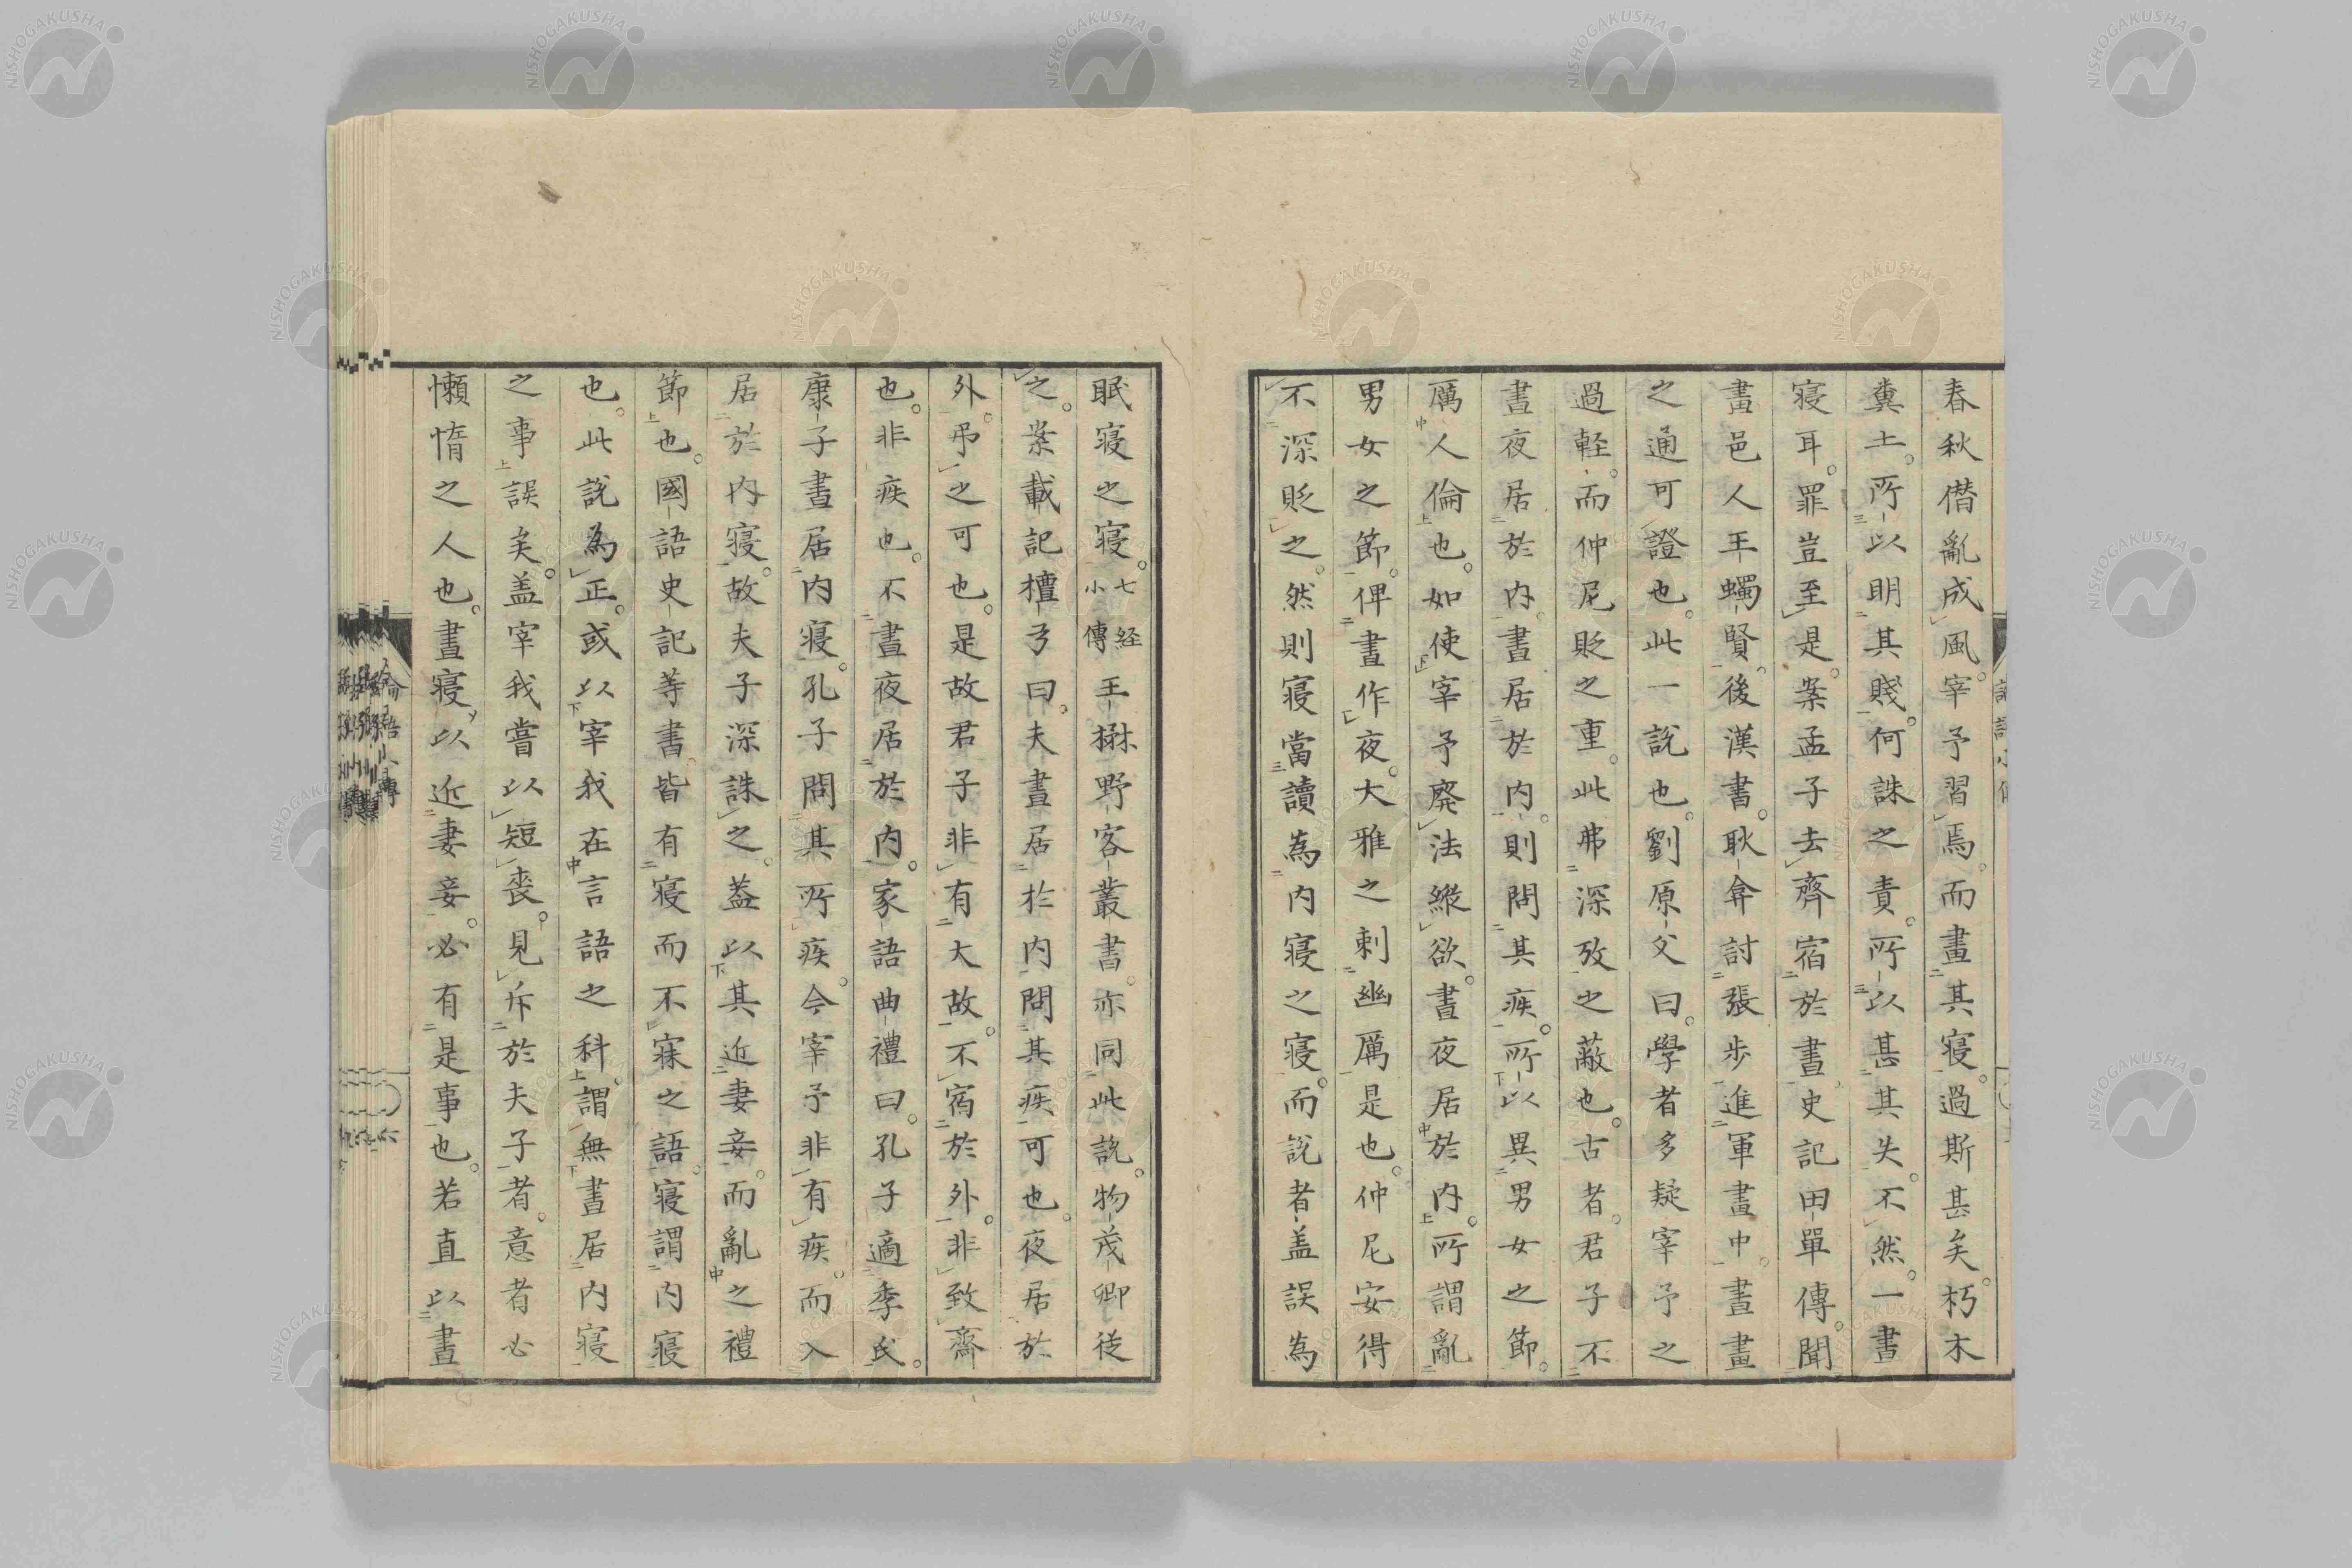 春秋僣亂成風宰予習焉而畫其寝過斯甚矣朽木
糞土所以明其賤何誅之責所以甚其失不然一晝
寝耳罪豈至是案孟子去齊宿於晝史記田單傳聞
畫邑人王蠋賢後漢書耿弇討張歩進軍畫中晝畫
之通可證也此一說也劉原父曰學者多疑宰予之
過軽而仲尼貶之重此弗深攷之蔽也古者君子不
晝夜居於内晝居於内則問其疾所以異男女之節
厲人倫也如使宰予廃法縱欲晝夜居於内所謂亂
男女之節俾晝作夜大雅之刺幽厲是也仲尼安得
不深貶之然則寝當讀為内寝之寝而説者盖誤為
眠寝之寝七経小傳王楙野客叢書亦同此説物茂卿従
之案載記檀弓曰夫晝居於内問其疾可也夜居於
外弔之可也是故君子非有大故不宿於外非致齋
也非疾也不晝夜居於内家語曲禮曰孔子適季氏
康子晝居内寝孔子問其所疾今宰予非有疾而入
居於内寝故夫子深誅之葢以其近妻妾而亂之禮
節也國語史記等書皆有寝而不寐之語寝謂内寝
也此説為正或以宰我在言語之科謂無晝居内寝
之事誤矣盖宰我嘗以短喪見斥於夫子者意者必
懶惰之人也晝寝以近妻妾必有是事也若直以晝
論語小傳
NISHOGAKUSHA